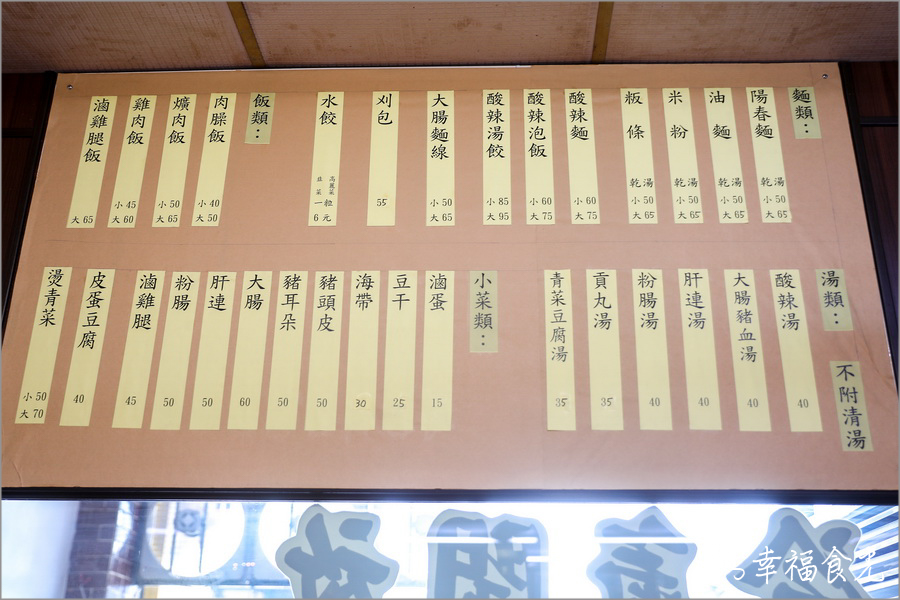 麵類：
陽春麵 乾 湯 小 50 大 65
油麵 乾 湯 小 50 大 65
米粉 乾 湯 小 50 大 65
粄條 乾 湯 小 50 大 65
酸辣麵 小 60 大 75
酸辣泡飯 小 60 大 75
酸辣湯餃 小 85 大 95
大腸麵線 小 50 大 65
刈包 55
水餃 高麗菜 韭菜 一粒 6元
飯類：
肉臊飯 小 40 大 50
爌肉飯 小 50 大 65
雞肉飯 小 45 大 60
滷雞腿飯 大 65
湯類：
不附清湯
酸辣湯 40
大腸豬血湯 40
肝連湯 40
粉腸湯 40
貢丸湯 35
青菜豆腐湯 35
小菜類：
滷蛋 15
豆干 25
海帶 30
豬頭皮 50
豬耳朵 50
大腸 60
肝連 50
粉腸 50
滷雞腿 45
皮蛋豆腐 40
燙青菜 小 50 大 70
冷氣開放
幸福食光